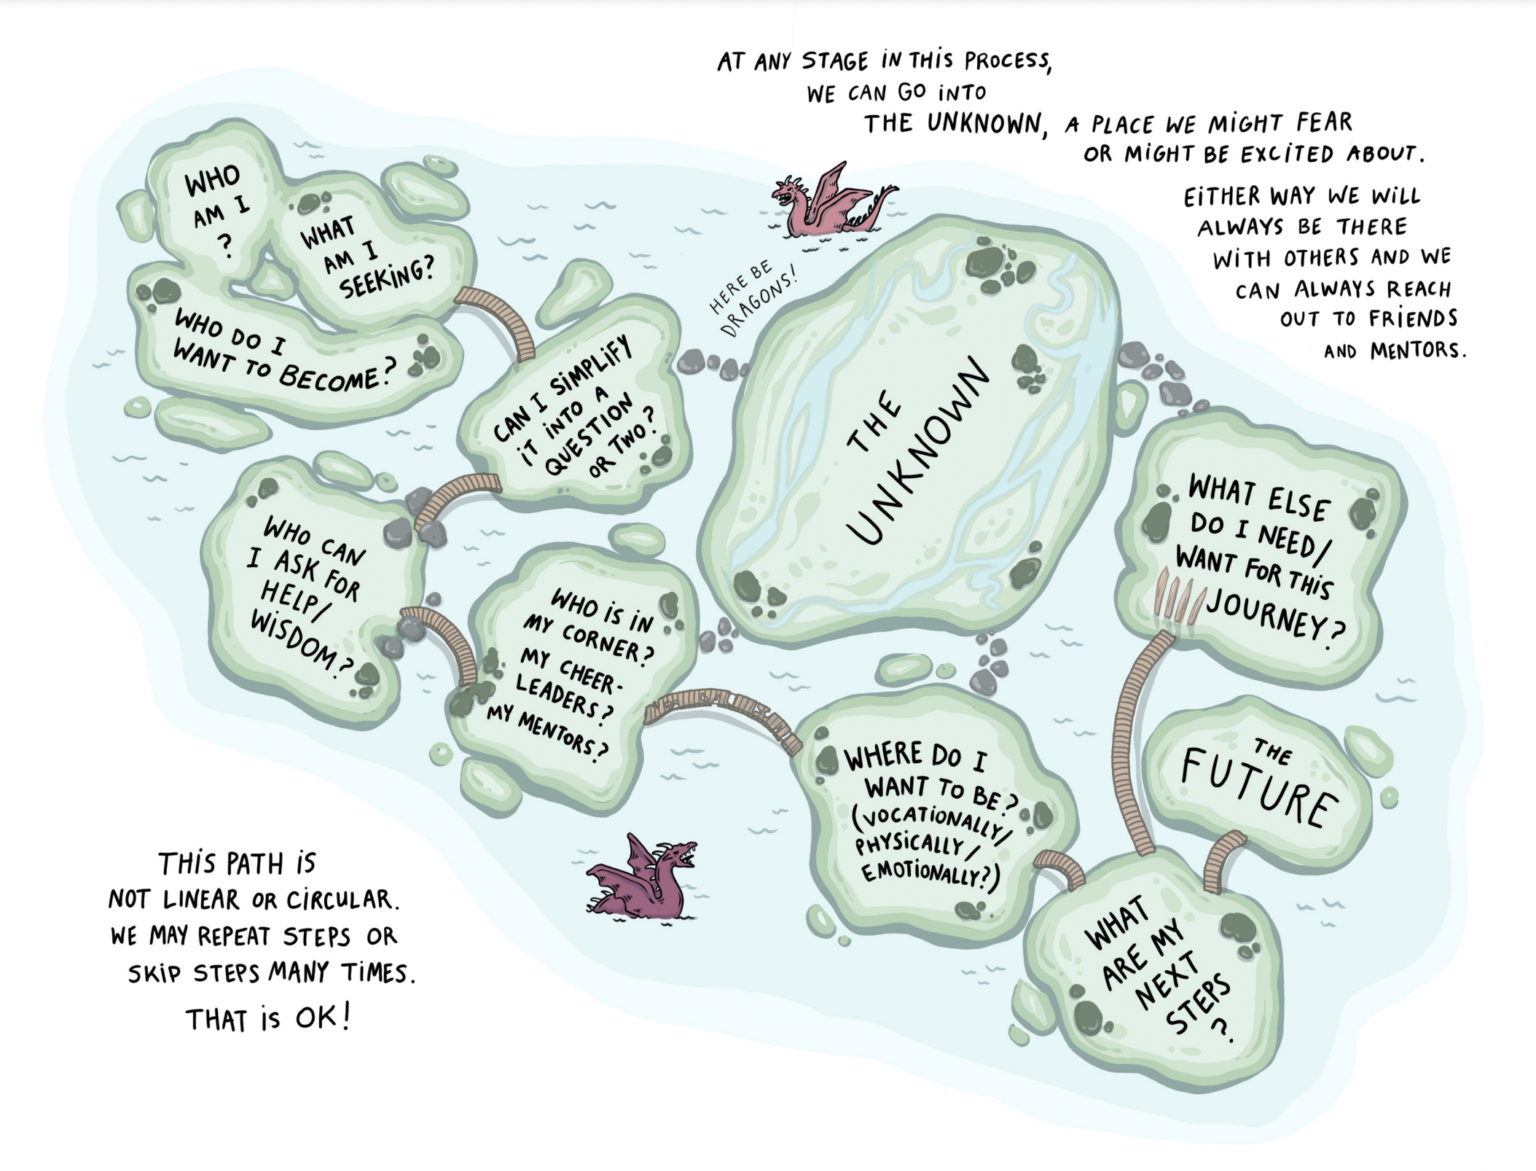 AT ANY STAGE IN THIS PROCESS,
WE CAN GO INTO
THE UNKNOWN, A PLACE WE MIGHT FEAR
OR MIGHT BE EXCITED ABOUT.
EITHER WAY WE WILL
ALWAYS BE THERE
WITH OTHERS AND WE
CAN ALWAYS REACH
OUT TO FRIENDS
AND MENTORS.
WHO
AM I
?
WHAT
AM I
SEEKING?
WHO DO I
WANT TO BECOME?
CAN I SIMPLIFY
IT INTO A
QUESTION
OR TWO?
HERE BE
DRAGONS!
THE
UNKNOWN
WHO CAN
I ASK FOR
HELP/
WISDOM?
WHO IS IN
MY CORNER?
MY CHEER-
LEADERS?
MY MENTORS?
WHERE DO I
WANT TO BE?
(VOCATIONALLY/
PHYSICALLY/
EMOTIONALLY?)
WHAT ELSE
DO I NEED/
WANT FOR THIS
JOURNEY?
THE
FUTURE
WHAT
ARE MY
NEXT
STEPS
?
THIS PATH IS
NOT LINEAR OR CIRCULAR.
WE MAY REPEAT STEPS OR
SKIP STEPS MANY TIMES.
THAT IS OK!